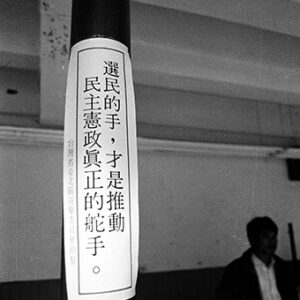 選民的手，才是推動
民主憲政真正的舵手。